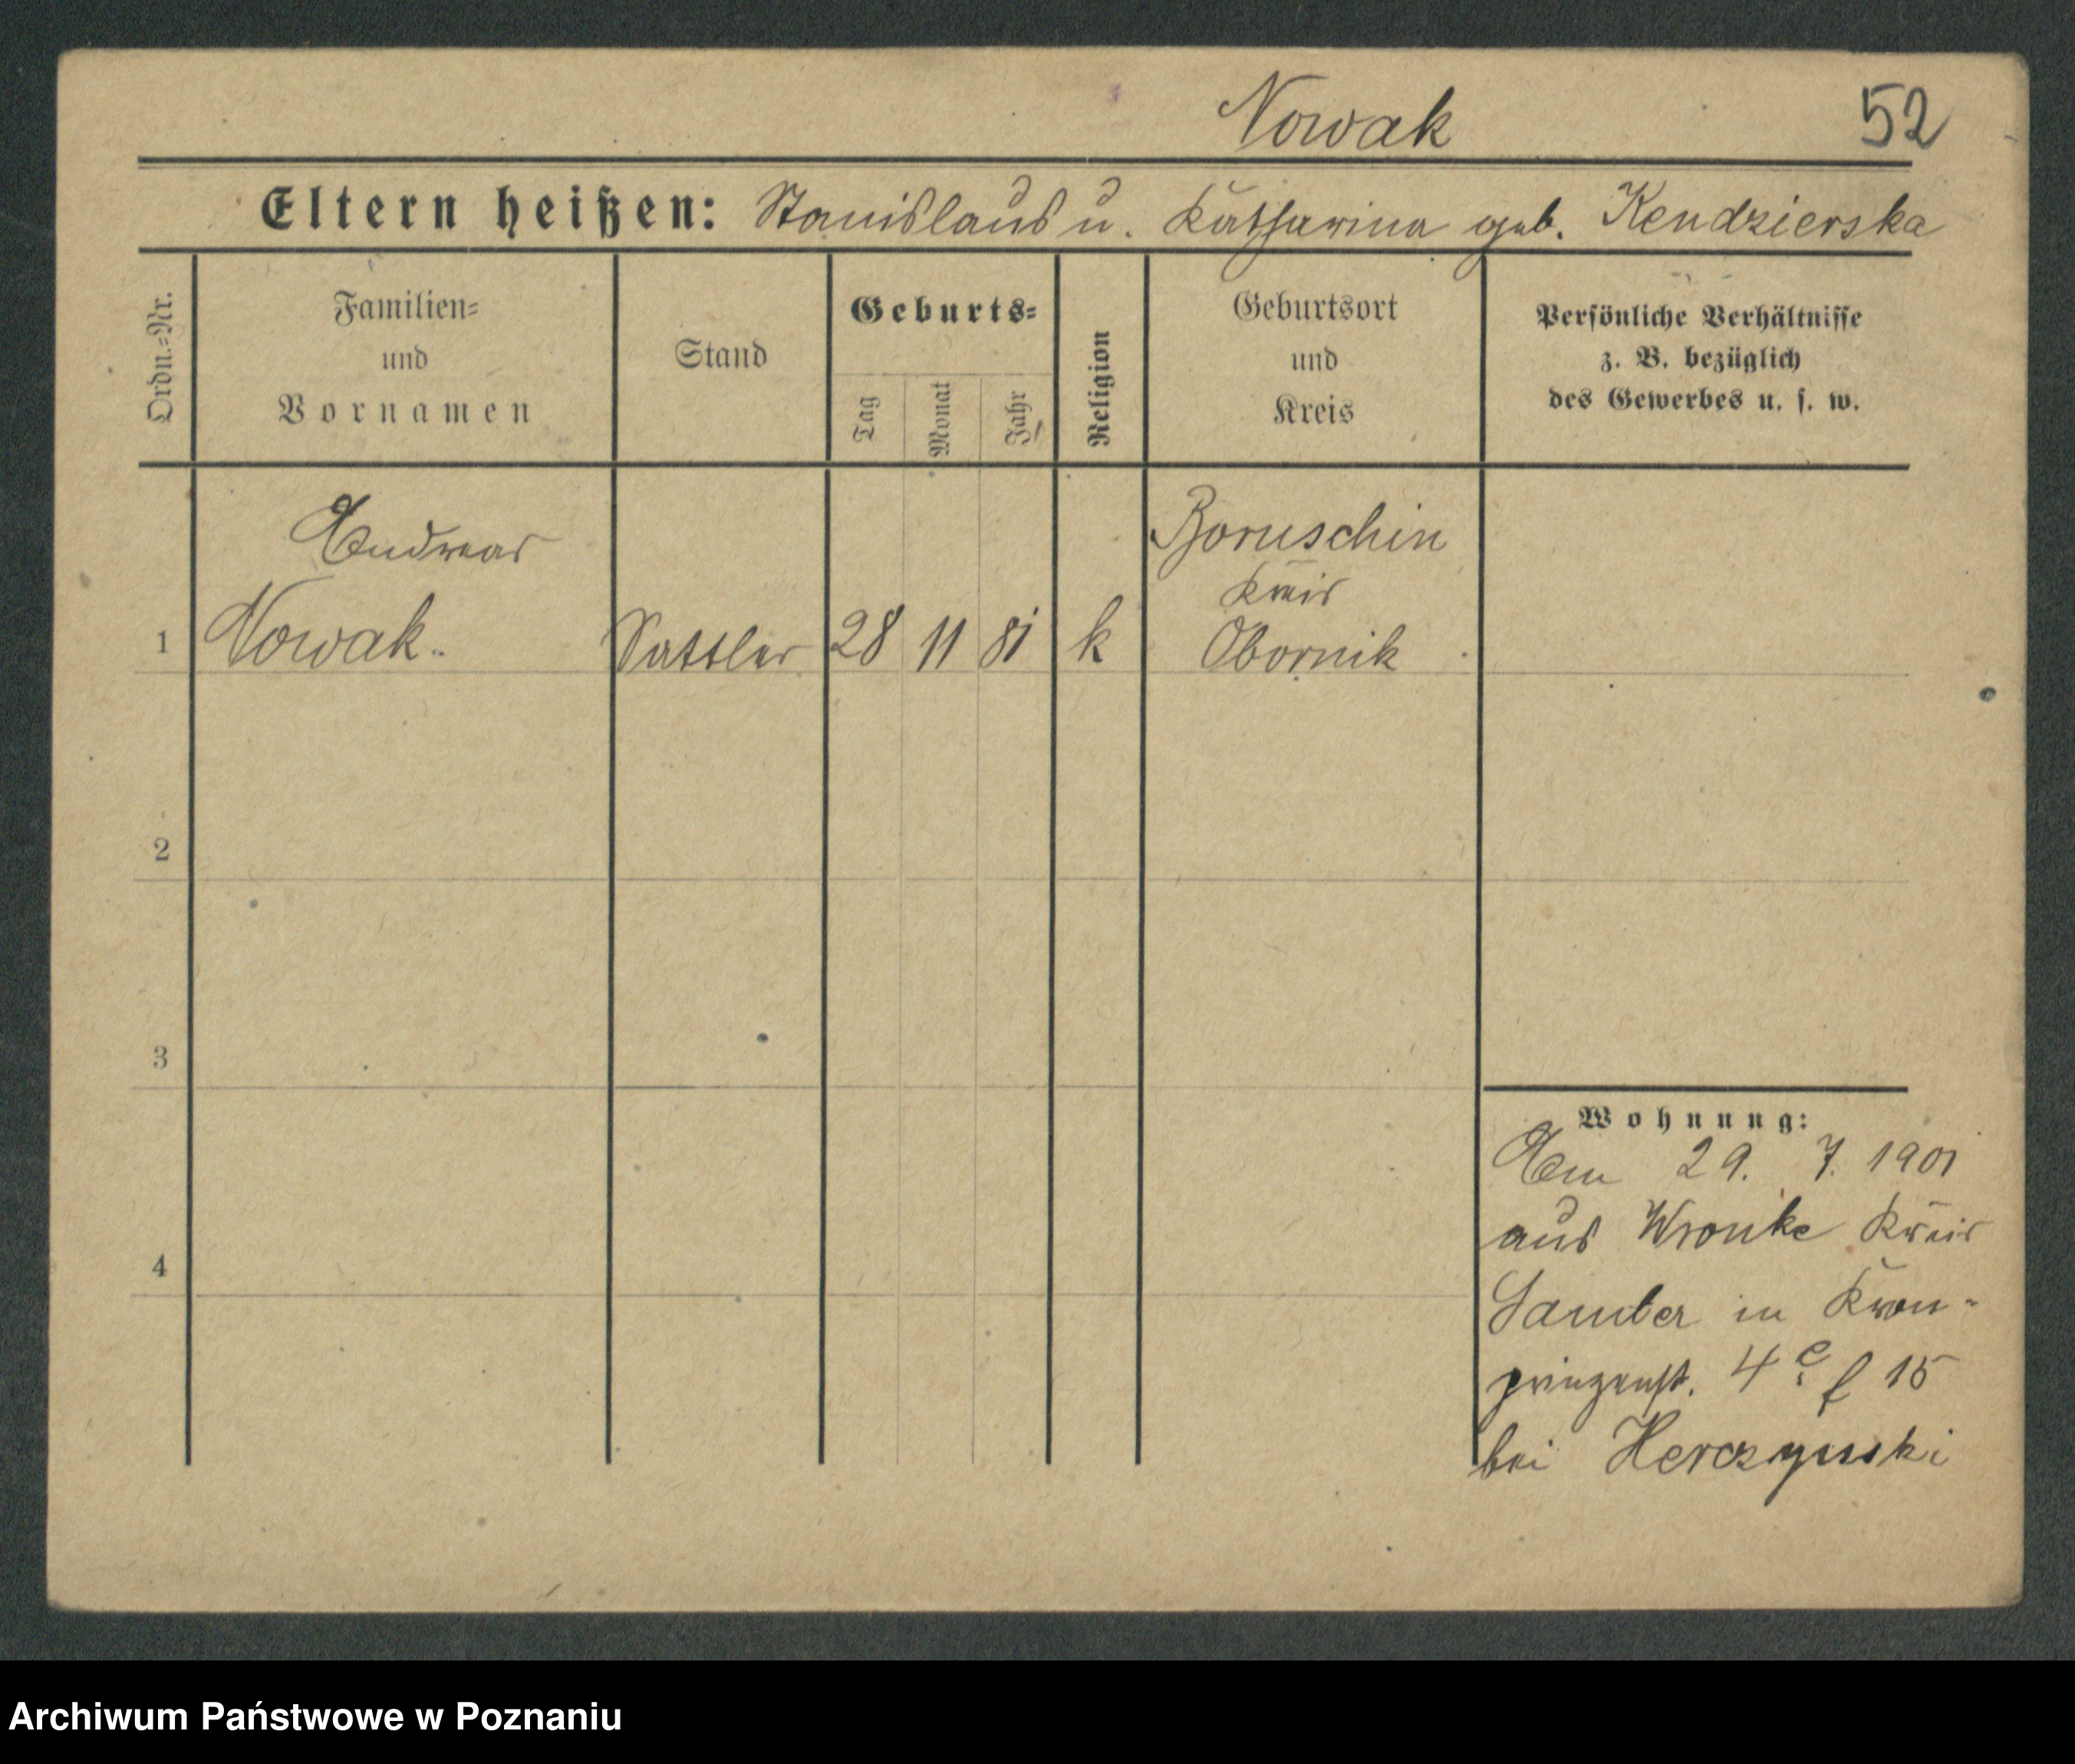 Nowak
52
Eltern heißen: Stanislaus u. Katharina geb. Kendzierska
Ordn.-Nr.
Familien-
und
Vornamen
Stand
Geburts-
Tag
Monat
Jahr
Religion
Geburtsort
und
Kreis
Persönliche Verhältnisse
z. B. bezüglich
des Gewerbes u. s. w.
Andreas
Boruschin
Kreis
1 Nowak. Sattler 28 11 81 k Obornik
2
3
4
Wohnung:
Am 29. 7. 1901
aus Wronke Kreis
Samter in Kron-
prinzenst. 4 e 15
bei Herczynski
Archiwum Państwowe w Poznaniu